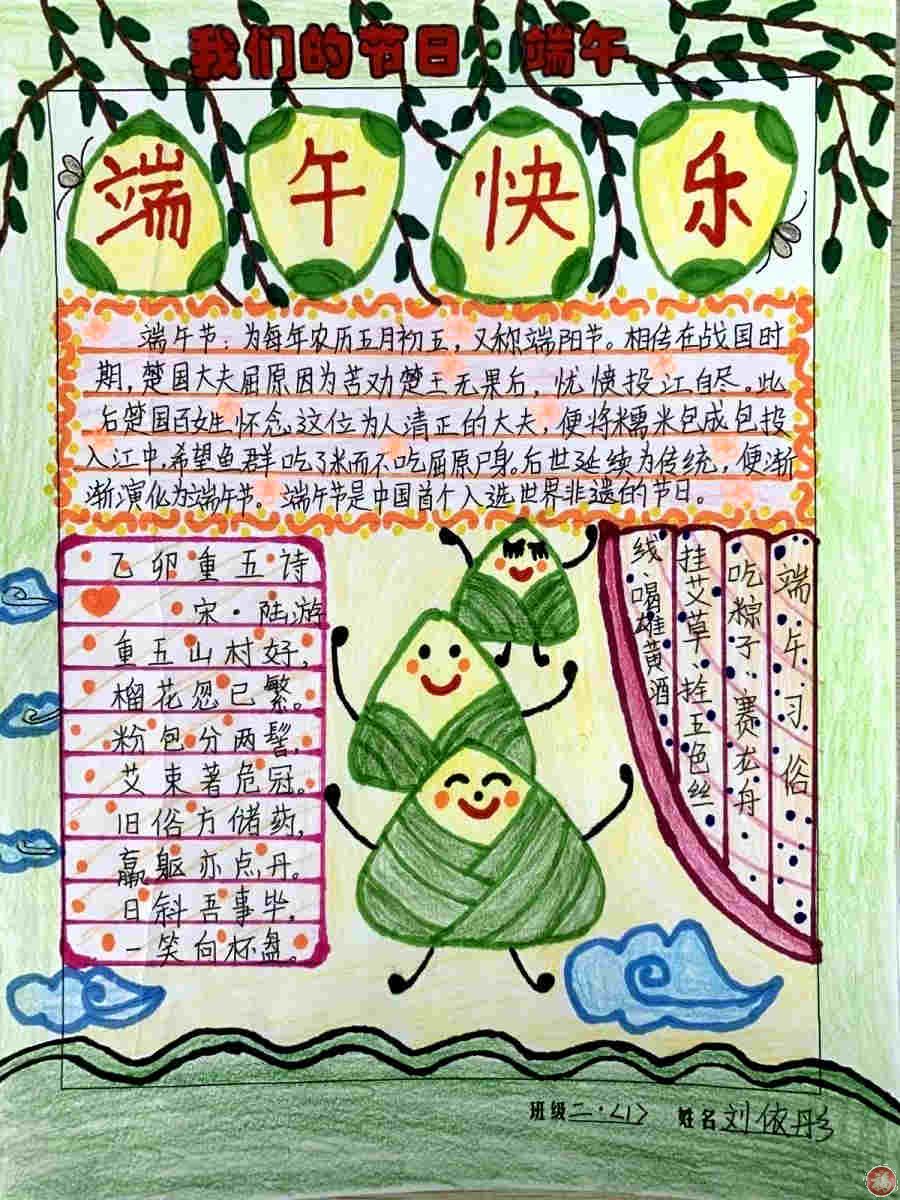 我们的节日·端午
端午快乐
端午节：为每年农历五月初五，又称端阳节。相传在战国时
期，楚国大夫屈原因为苦劝楚王无果后，忧愤投江自尽。此
后楚国百姓怀念这位为人清正的大夫，便将糯米包成包投
入江中，希望鱼群吃了米而不吃屈原尸身。后世延续为传统，便渐
渐演化为端午节。端午节是中国首个入选世界非遗的节日。
乙卯重五诗
宋·陆游
重五山村好，
榴花忽已繁。
粽包分两髻，
艾束著危冠。
旧俗方储药，
羸躯亦点丹。
日斜吾事毕，
一笑向杯盘。
端午习俗
吃粽子、赛龙舟
挂艾草、拴五色丝
线、喝雄黄酒
班级二·<1> 姓名刘依彤
福